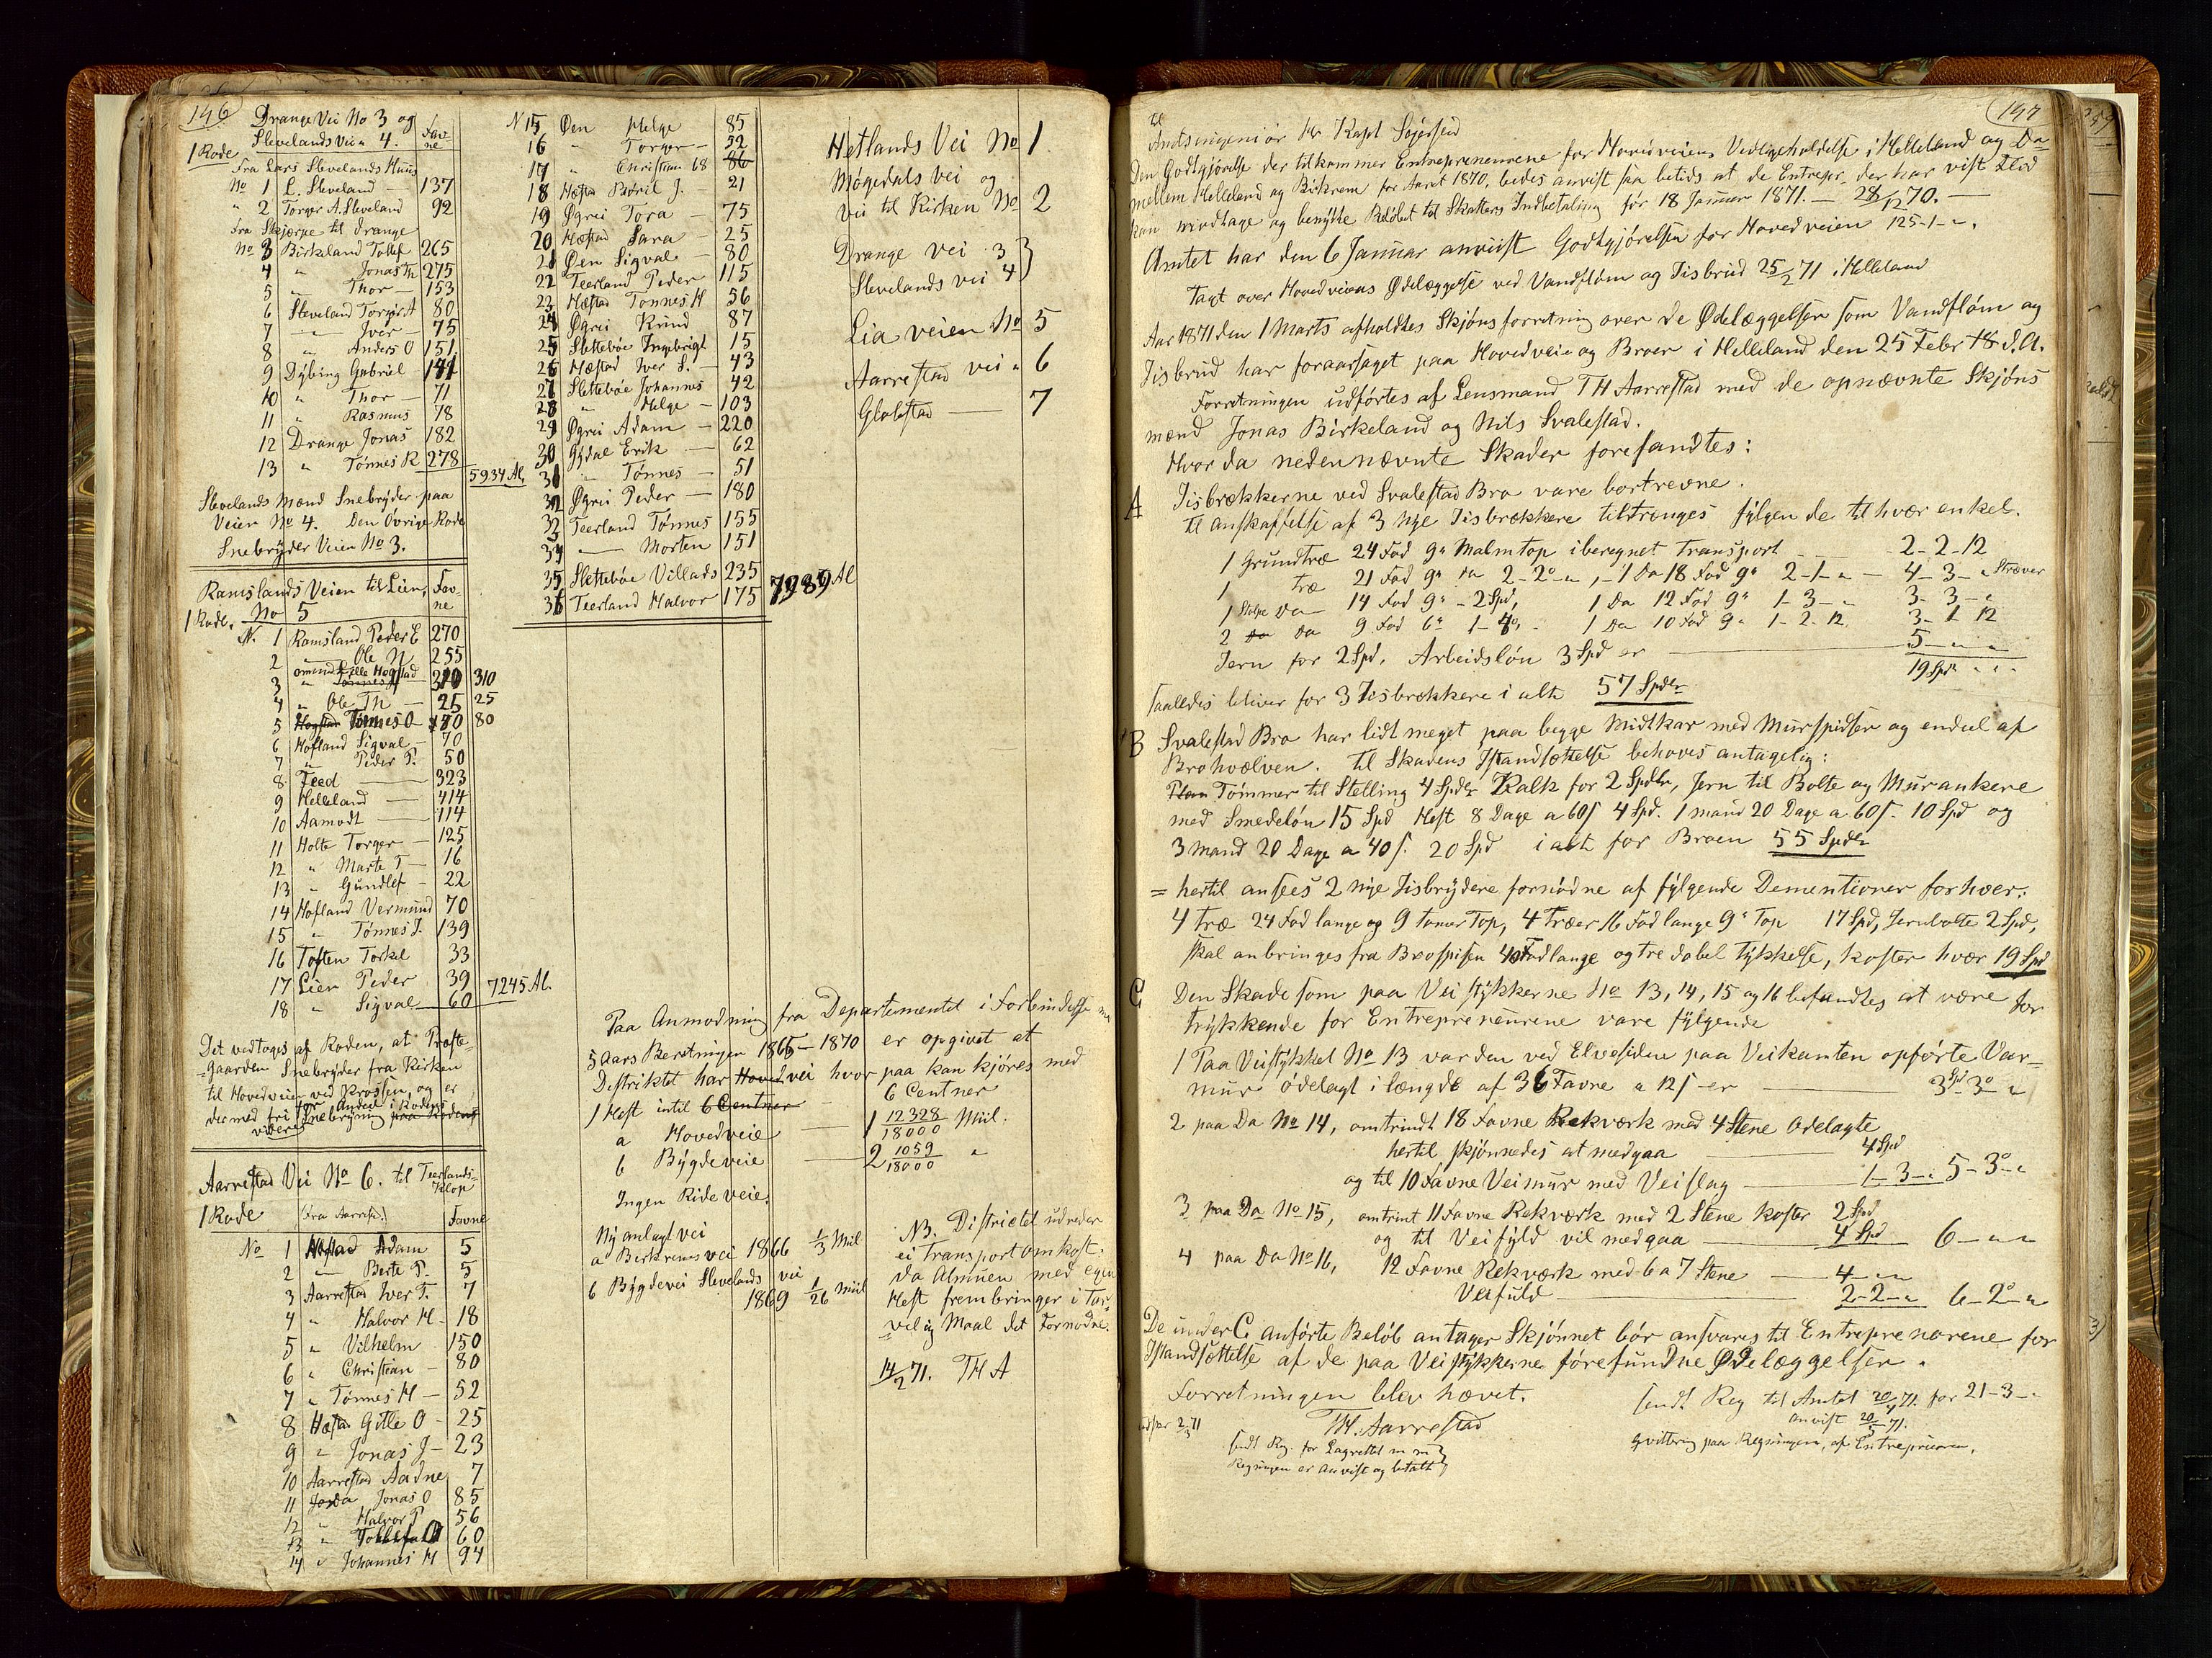 146
Drange Vei No 3 og
Slevelands Vei " 4.
Favne
1 Rode
Fra Lars Slevelands Huus
No 1 L. Sleveland — 137
" 2 Torger A. Sleveland 92
Fra Skjerpe til Drange
No 3 Birkeland Tollef 265
4 " Jonas Th 275
5 " Thor — 153
6 Sleveland Torger A 80
7 " Iver — 75
8 " Anders O 151
9 Dybing Gabriel 141
10 " Thor — 71
11 " Rasmus 78
12 Drange Jonas 182
13 " Tönnes R 278
5934 Al.
Slevelands Mænd Snebryder paa
Veien No 4. Den Övrige Rode
Snebryder Veien No 3.
Ramslands Veien til Lien,
Favne
1 Rode. No 5
N. 1 Ramsland Peder E 270
2 — Ole N 255
3 " 310 310
4 " Ole Th — 25 25
5 Hogstad Tönnes O — 80
6 Hofland Sigval — 70
7 " Peder P. 50
8 Feed — 323
9 Helleland — 414
10 Aamodt — 114
11 Holte Torger — 125
12 " Marte T — 16
13 " Gundlef — 22
14 Hofland Vermund 70
15 " Tönnes J. 139
16 Toften Torkel 33
17 Lien Peder 39
18 " Sigval — 60
7245 Al.
Det vedtages af Roden, at Præste-
gaarden Snebryder fra Kirken
til Hovedveien ved Krossen, og er
dermed fri for Anden i Rodens
videre Snebryning paa Rodens
Aarrestad Vei No 6. til Teerlands-
Klop
1 Rode (fra Aarrest.) Favne
No 1 Hæstad Adam 5
2 — Berte P. 5
3 Aarrestad Iver T. 7
4 " Halvor H - 18
5 " Vilhelm 150
6 " Christian - 80
7 " Tönnes H — 52
8 Hæstad Gitle O - 25
9 " Jonas J - 23
10 Aarrestad Aadne 7
11 Jonas O 85
12 " Halvor P 56
13 " Tollef 60
14 " Johannes H 94
N 15 Øen Helge 85
16 " Torger — 52
17 " Christian 68 86
18 Hæstad Peder J. - 21
19 Øgrei Tora — 75
20 Hæstad Sara — 25
21 Øen Sigval — 80
22 Teerland Peder 115
23 Hæstad Tönnes H 56
24 Øgrei Knud 87
25 Slettebøe Ingebrigt 15
26 Hæstad Iver S. - 43
27 Slettebøe Johannes 42
28 " Helge — 103
29 Øgrei Adam — 220
30 Gydal Erik — 62
31 " Tønnes — 51
32 Øgrei Peder — 180
33 Teerland Tönnes 155
34 — Morten 151
35 Slettebøe Villads 235
36 Teerland Halvor 175
7989 Al
Hetlands Vei No 1.
Mögedals vei og
vei til Kirken No 2
Drange vei 3
Slevelands vei 4
Lia veien No 5
Aarrestad vei " 6
Glabstad — 7
Paa Anmodning fra Departementet i Forbindelse m
5 Aars Beretningen 1866 – 1870 er opgivet at
Distriktet har Hovedvei hvor paa kan kjöres med
1 Hest intil 6 Centner 6 Centner
a Hovedveie — 1 12328/18000 Miil.
b Bygdeveie — 2 1059/18000 "
Ingen Rideveie.
Ny anlagt vei
a Birkrems vei 1866 1/3 Miil
b Bygdevei Slevelands vei
1869 1/26 Miil
NB. Distriktet udreder
ei Transportomkost:
da Almuen med egen
Hest frembringer i Tar-
velig Maal det Fornødne.
14/2 71. TH A
147
Til
Amtsingeniör Hr Kapt
Den Godtgjörelse der tilkommer Entreprenneurene for Hovedveiens Vedligeholdelse i Helleland og Da
mellem Helleland og Birkrem for Aaret 1870, bedes anvist saa betids at de Entrepr. der har vist Flid
kan modtage og benytte Belöbet til Skatters Indbetaling för 18 Januar 1871. — 28/12 70. —
Amtet har den 6 Januar anviist Godtgjörelsen for Hovedveien 125-1-".
Taxt over Hovedveiens Ødelæggelse ved Vandflöm og Iisbrud 25/2 71 i Helleland
Aar 1871 den 1 Marts afholdtes Skjöns forretning over de Ødelæggelser som Vandflöm og
Iisbrud har foraarsaget paa Hovedveie og Broer i Helleland den 25 Febr d. A.
Forretningen udförtes af Lensmand TH Aarrestad med de opnævnte Skjöns
mænd Jonas Birkeland og Nils Svalestad.
Hvor da nedennævnte Skader forefandtes:
A Iisbrækkerne ved Svalestad Bro vare bortrevne.
Til anskaffelse af 3 nye Iisbrækkere tiltrænges fölgende til hvær enkel.
1 Grundtræ 24 Fod 9" Malmtop iberegnet Transport — 2-2-12
1 træ 21 Fod 9" Da 2-2-", - 1 Da 18 Fod 9" 2-1-" — 4-3-" Stræver
1 Stolpe Da 14 Fod 9" - 2 Spd, 1 Da 12 Fod 9" 1-3-" 3-3-"
2 Da 9 Fod 6" 1-4, - 1 Da 10 Fod 9" 1-2-12 3-1-12
Jern for 2 Spd. Arbeidslön 3 Spd er — 5 " "
19 Spd " "
saalledes bliver for 3 Iisbrækkere i alt 57 Spdr
B Svalestad Bro har lidt meget paa begge Midtkar med Murspidser og endeel af
Brohvælven. til Skadens Istandsættelse behoves antagelig:
Tömmer til Stelling 4 Spdr Kalk for 2 Spdlr, Jern til Bolte og Murankere
med Smedelön 15 Spd Hest 8 Dage a 60 s 4 Spd. 1 mand 20 Dage a 60 s. 10 Spd og
3 mand 20 Dage a 40 s. 20 Spd i alt for Broen 55 Spdlr
= hertil ansees 2 nye Iisbrydere fornödne af fylgende Dementioner for hver:
4 Træ 24 Fod lange og 9 tomer Top, 4 Træer 16 Fod lange 9" Top 17 Spd, Jernbolte 2 Spd,
skal anbringes fra Brospisen 40 Fod lange og tre dobel tykkelse, koster hvær 19 Spd
C Den Skade som paa Vei stykkerne No 13, 14, 15 og 16 befandtes at være for
trykkende for Entreprenörene vare fylgende
1 Paa Veistykket No 13 var den ved Elvesiden paa Veikanten opförte Var-
mur ödelagt i længde af 36 Favne a 12 s er — 3 Spd 3 "
2 paa Da No 14, omtrindt 18 Favne Rekværk med 4 Stene Ödelagte
hertil skjönnedes at medgaa — 4 Spd
og til 10 Favne Veimur med Veislag — 1-3-" 5-3-"
3 paa Da No 15, omtrint 11 Favne Rekværk med 2 Stene koster 2 Spd
og til Veifyld vil medgaa — 4 Spd 6-"-"
4 paa Da No 16, 12 Favne Rekværk med 6 a 7 Stene — 4-"-"
Veifuld — 2-2-" 6-2-"
De under C anförte Belöb antager Skjönnet bör ansvares til Entreprenörene for
Istandsættelse af de paa Veistykkerne forefundne Ødelæggelser.
Forretningen blev hævet.
TH. Aarrestad
sendt Reg. for Lagrettet m m
Regningen er anvist og betalt
sendt Reg til Amtet 20/4 71. for 21-3-"
anvist 20/5 71.
Qvittring paa Regningen, af Entreprenören,